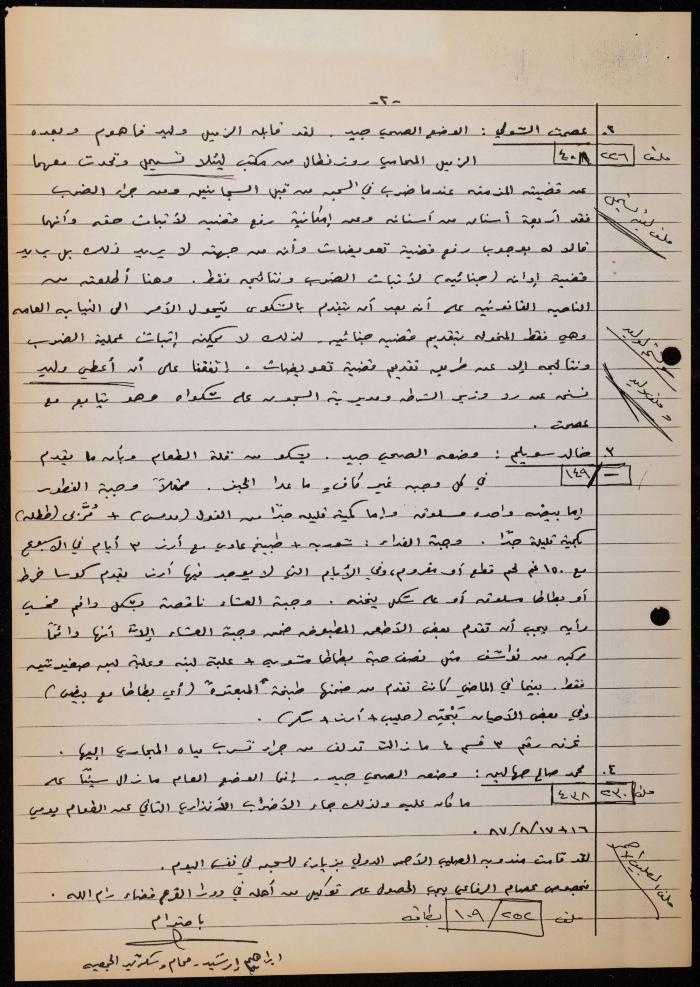 -٢-
٢. عصمت الشولي : الوضع الصحي جيد . لقد قابله الزميل وليد فاهوم وبعده
ملف ٢٢٦ / ٤٠٨ الزميل المحامي روزنطال من مكتب ليئلا تسيمل وتحدث معهما
ملف ليئه تسيمل
عن قضيته المزمنه عندما ضرب في السجن من قبل السجانين ومن جراء الضرب
فقد أربعة أسنان من أسنانه وعن إمكانية رفع قضيه لأثبات حقه وأنهما
قالا له بوجوب رفع قضية تعويضات وأنه من جهته لا يريد ذلك بل يريد
قضية إدانه (جنائيه) لأثبات الضرب ونتائجه فقط . وهنا أطلعته من
الناحيه القانونيه على أنه بعد أن نتقدم بالشكوى يتحول الأمر الى النيابه العامه
وهي فقط المخوله بتقديم قضيه جنائيه . لذلك لا يمكنه إثبات عملية الضرب
ونتائجه إلا عن طريق تقديم قضية تعويضات . إتفقنا على أن أعطي وليد
نسخه عن رد وزير الشرطه ومديرية السجون على شكواه وهو يتابع مع
عصمت .
٣. خالد سويلم : وضعه الصحي جيد . يشكو من قلة الطعام وبأن ما يقدم
١٤٩ / = في كل وجبه غير كافٍ ما عدا الخبز . فمثلاً وجبة الفطور
إما بيضه واحده مسلوقه وإما كمية قليله جدًا من الفول (مدمس) + مُرَبّى (طلطله)
كمية قليلة جدًا . وجبة الغداء : شوربه + طبيخ عادي مع أرز ٣ أيام في الأسبوع
مع ١٥٠ غم لحم قطع أو مفروم، وفي الأيام التي لا يوجد فيها أرز يقدم كوسا خرط
أو بطاطا مسلوقه أو على شكل يخنه . وجبة العشاء ناقصة بشكل دائم فحسب
رأيه يجب أن تقدم بعض الأطعمه المطبوخه ضمن وجبة العشاء إلا أنها دائمًا
مركبه من نواشف مثل نصف حبة بطاطا مشويه + علبة لبنه وعلبة لبن صغيرتين
فقط . بينما في الماضي كانت تقدم من ضمنها طبخة "المبعثرة" (أي بطاطا مع بيض)
وفي بعض الأحيان بَحْتيه (حليب + أرز + سكر) .
غرفه رقم ٣ قسم ٤ ما زالت تدلف من جراء تسرب مياه المجاري إليها .
٤. محمد صالح جهالين : وضعه الصحي جيد . إنما الوضع العام ما زال سيئًا على
ملف ٢٣٠ / ٤٣٨ ما كان عليه ولذلك جاء الأضراب الأنذاري الثاني عن الطعام يومي
١٦+١٧/٨/٨٧ .
ملف الصليب الأحمر
لقد قامت مندوبه الصليب الأحمر الدولي بزيارة للسجن في نفس اليوم .
بخصوص عصام الرفاعي يجب الحصول على توكيل من أهله في دورا القرع قضاء رام الله .
ملف ٢٥٢ / ١٠٩ بطاقه
باحترام
ابراهيم ارشيد - محام وسكرتير الجمعيه